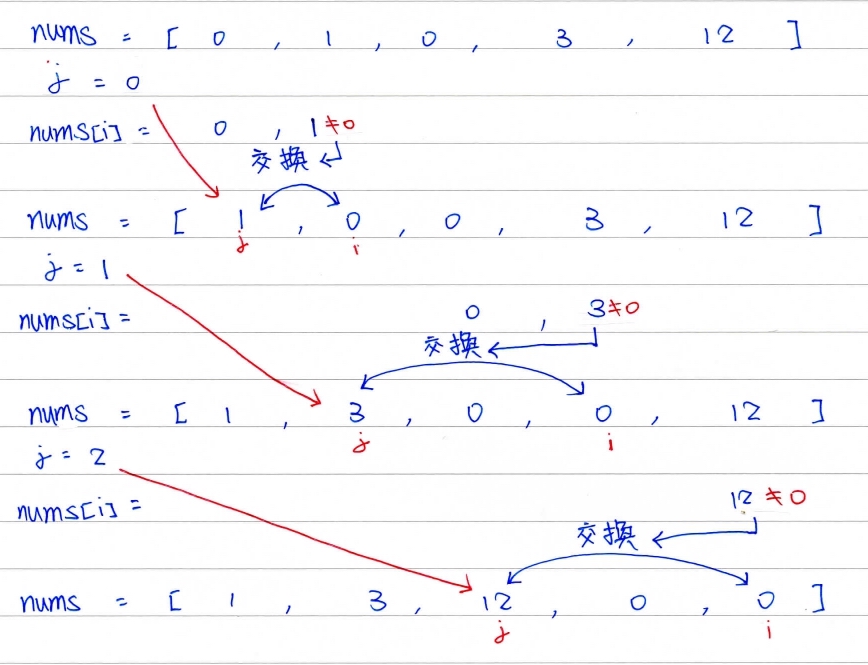 nums = [ 0 , 1 , 0 , 3 , 12 ]
j = 0
nums[i] = 0 , 1≠0
交換
nums = [ 1 , 0 , 0 , 3 , 12 ]
j i
j = 1
nums[i] = 0 , 3≠0
交換
nums = [ 1 , 3 , 0 , 0 , 12 ]
j i
j = 2
nums[i] = 12≠0
交換
nums = [ 1 , 3 , 12 , 0 , 0 ]
j i